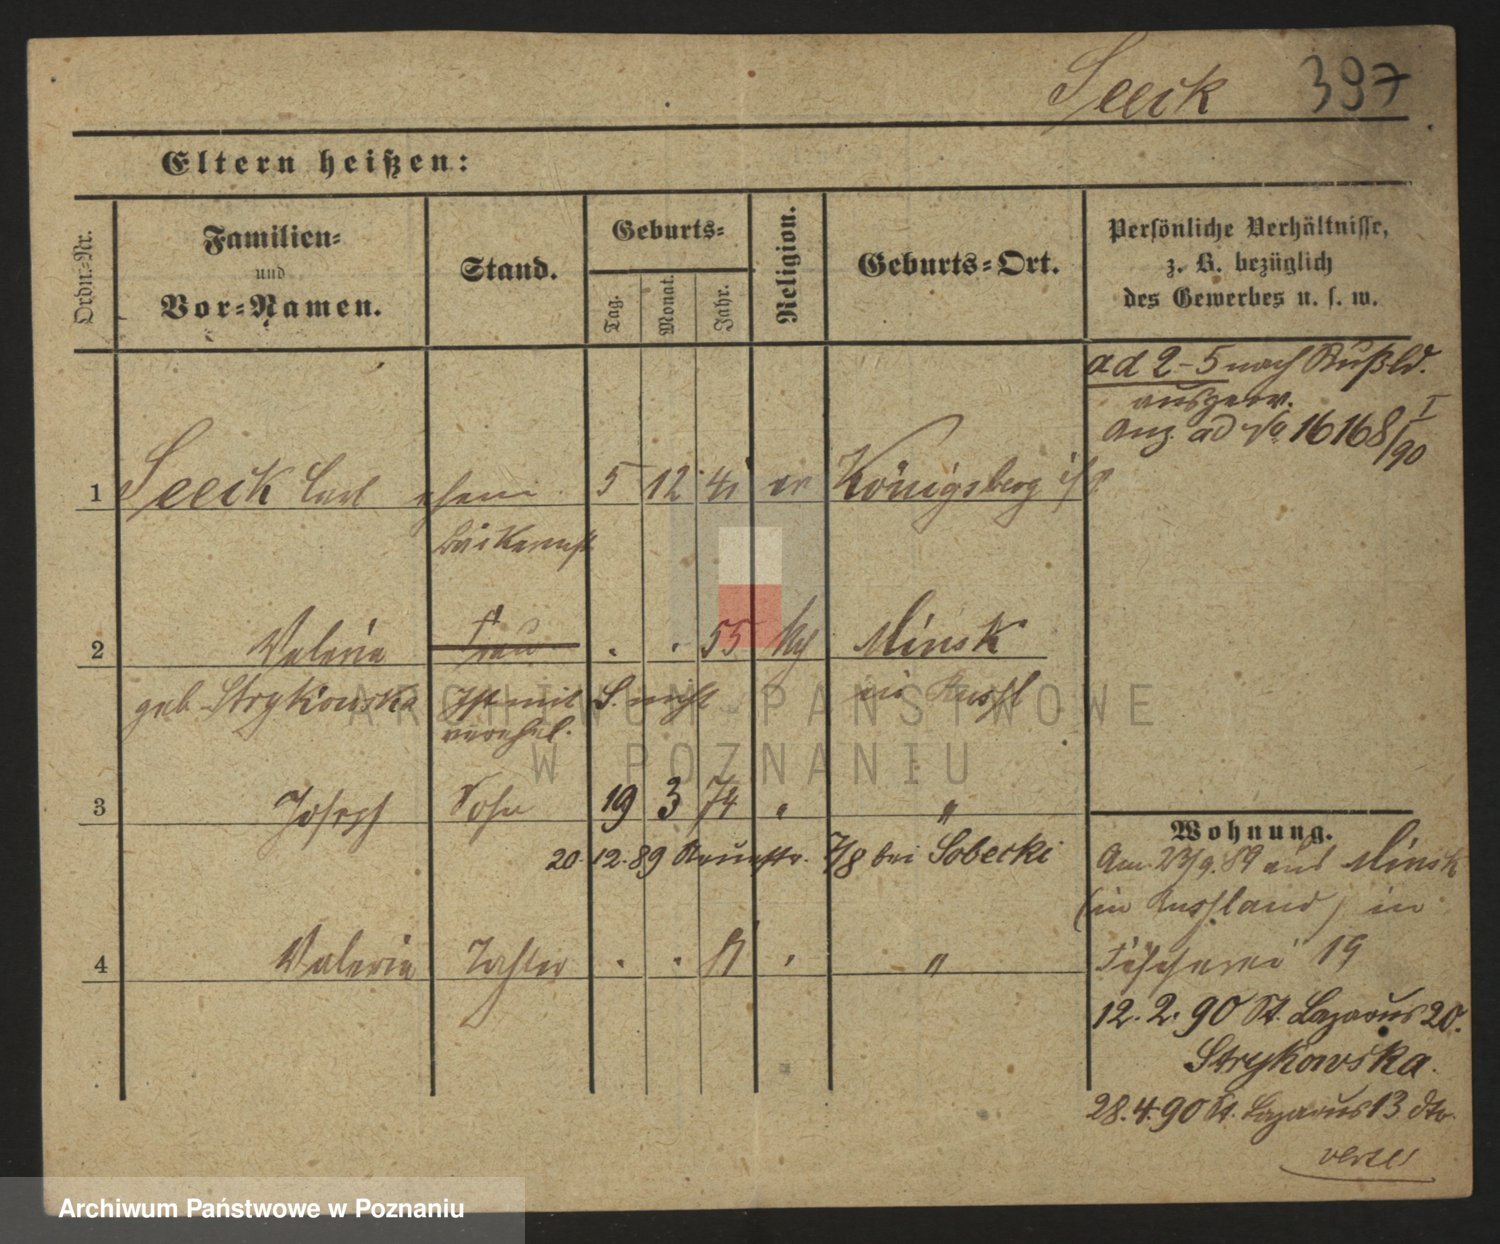 Seeck 397
Eltern heißen:
Ordn.-Nr.
Familien-
und
Vor-Namen.
Stand.
Geburts-
Tag.
Monat.
Jahr.
Religion.
Geburts-Ort.
Persönliche Verhältnisse,
z. B. bezüglich
des Gewerbes u. s. w.
ad 2-5 nach Rußld.
ausgew.
Anz. ad No 16168/90 I
1 Seeck Carl 5 12 41 ev Königsberg i/P
2 Valeria Frau . . 55 kth Minsk
geb. Strykowska Ist mit S. nicht in Russl
verehel.
3 Joseph Sohn 19 3 74 " "
20.12.89 7/8 bei Sobecki
4 Valeria Tochter . . " "
Wohnung.
Am 23/9.89 aus Minsk
(in Russland) in
Fischerei 19
12.2.90 St. Lazarus 20.
Strykowska.
28.4.90 St. Lazarus 13 dto.
verte!
ARCHIWUM PAŃSTWOWE
W POZNANIU
Archiwum Państwowe w Poznaniu